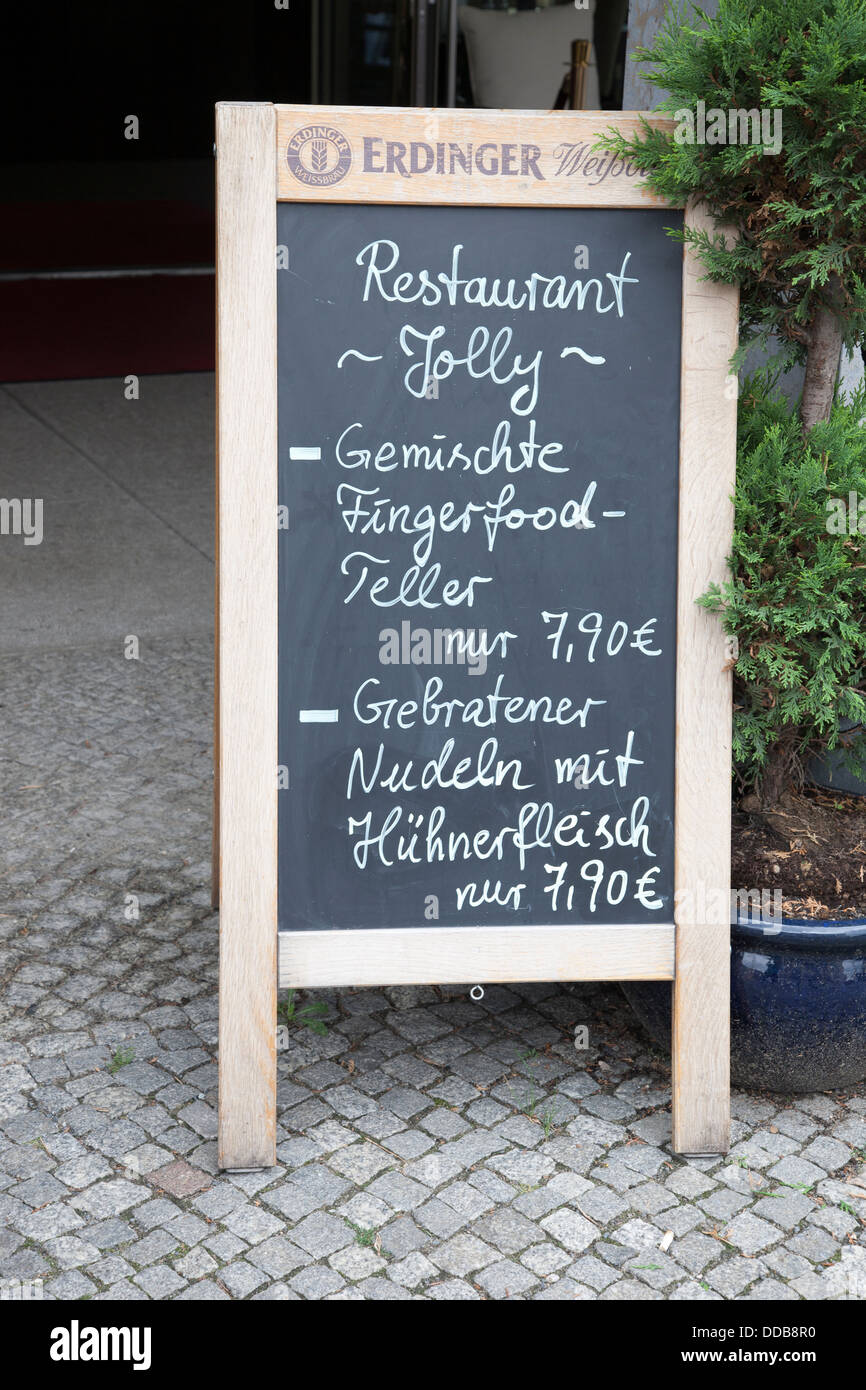 ERDINGER
WEISSBRÄU
ERDINGER Weißb
Restaurant
~ Jolly ~
- Gemischte
Fingerfood-
Teller
nur 7,90€
- Gebratener
Nudeln mit
Hühnerfleisch
nur 7,90€
alamy
Image ID: DDB8R0
www.alamy.com